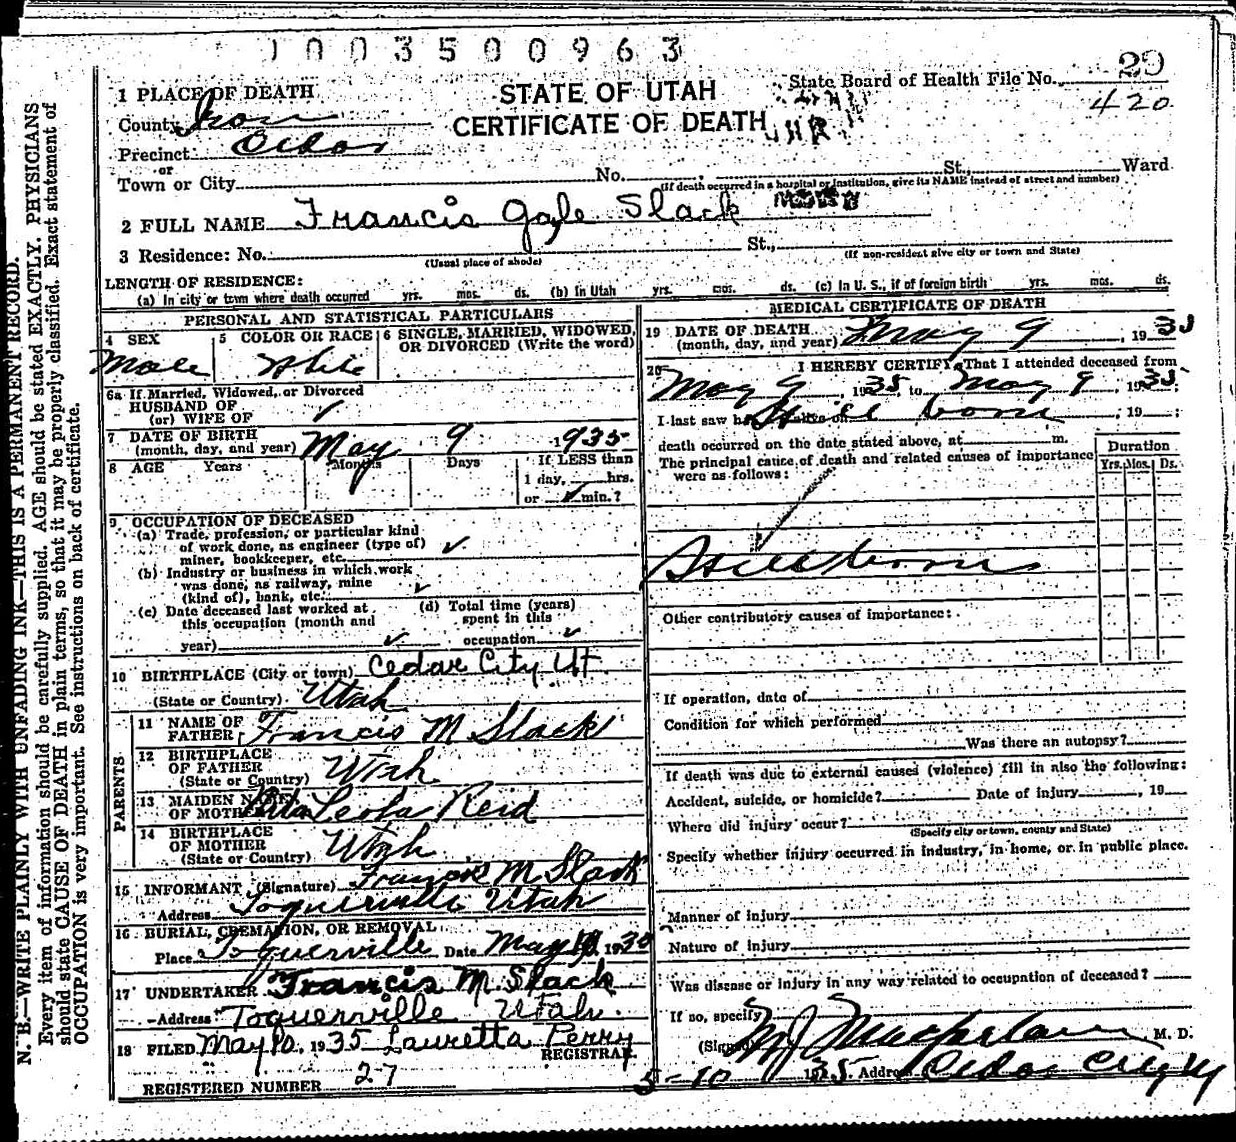 1003500963
29
State Board of Health File No.
420
STATE OF UTAH
CERTIFICATE OF DEATH
1 PLACE OF DEATH
County Iron
Precinct Cedar
or
Town or City No. St., Ward
(If death occurred in a hospital or institution, give its NAME instead of street and number)
2 FULL NAME Francis Gale Slack
3 Residence: No. St.,
(Usual place of abode) (If non-resident give city or town and State)
LENGTH OF RESIDENCE:
(a) In city or town where death occurred yrs. mos. ds. (b) In Utah yrs. mos. ds. (c) In U. S., if of foreign birth yrs. mos. ds.
PERSONAL AND STATISTICAL PARTICULARS
4 SEX 5 COLOR OR RACE 6 SINGLE, MARRIED, WIDOWED, OR DIVORCED (Write the word)
Male White
6a If Married, Widowed, or Divorced
HUSBAND OF
(or) WIFE OF
7 DATE OF BIRTH
(month, day, and year) May 9 1935
8 AGE Years Months Days If LESS than
1 day, hrs.
or min.?
9 OCCUPATION OF DECEASED
(a) Trade, profession, or particular kind
of work done, as engineer (type of)
miner, bookkeeper, etc.
(b) Industry or business in which work
was done, as railway, mine
(kind of), bank, etc.
(c) Date deceased last worked at
this occupation (month and
year)
(d) Total time (years)
spent in this
occupation
10 BIRTHPLACE (City or town) Cedar City Ut
(State or Country) Utah
PARENTS
11 NAME OF
FATHER Francis M Slack
12 BIRTHPLACE
OF FATHER
(State or Country) Utah
13 MAIDEN NAME
OF MOTHER Leola Reid
14 BIRTHPLACE
OF MOTHER
(State or Country) Utah
15 INFORMANT (Signature) Francis M Slack
Address Toquerville Utah
16 BURIAL, CREMATION, OR REMOVAL
Place Toquerville Date May 1935
17 UNDERTAKER Francis M. Slack
Address Toquerville Utah.
18 FILED May 10, 1935 Lauretta Perry
REGISTRAR.
REGISTERED NUMBER 27
MEDICAL CERTIFICATE OF DEATH
19 DATE OF DEATH
(month, day, and year) May 9, 1935
20 I HEREBY CERTIFY, That I attended deceased from
May 9, 1935, to May 9, 1935;
I last saw h alive on Still born, 19 ;
death occurred on the date stated above, at m.
The principal cause of death and related causes of importance
were as follows:
Duration
Yrs. Mos. Ds.
Stillborn
Other contributory causes of importance:
If operation, date of
Condition for which performed
Was there an autopsy?
If death was due to external causes (violence) fill in also the following:
Accident, suicide, or homicide? Date of injury , 19
Where did injury occur?
(Specify city or town, county and State)
Specify whether injury occurred in industry, in home, or in public place.
Manner of injury
Nature of injury
Was disease or injury in any way related to occupation of deceased?
If no, specify
(Signed) M J Macfarlane, M. D.
5-10 1935 Address Cedar City U
N. B.—WRITE PLAINLY WITH UNFADING INK—THIS IS A PERMANENT RECORD.
Every item of information should be carefully supplied. AGE should be stated EXACTLY. PHYSICIANS
should state CAUSE OF DEATH in plain terms, so that it may be properly classified. Exact statement of
OCCUPATION is very important. See instructions on back of certificate.